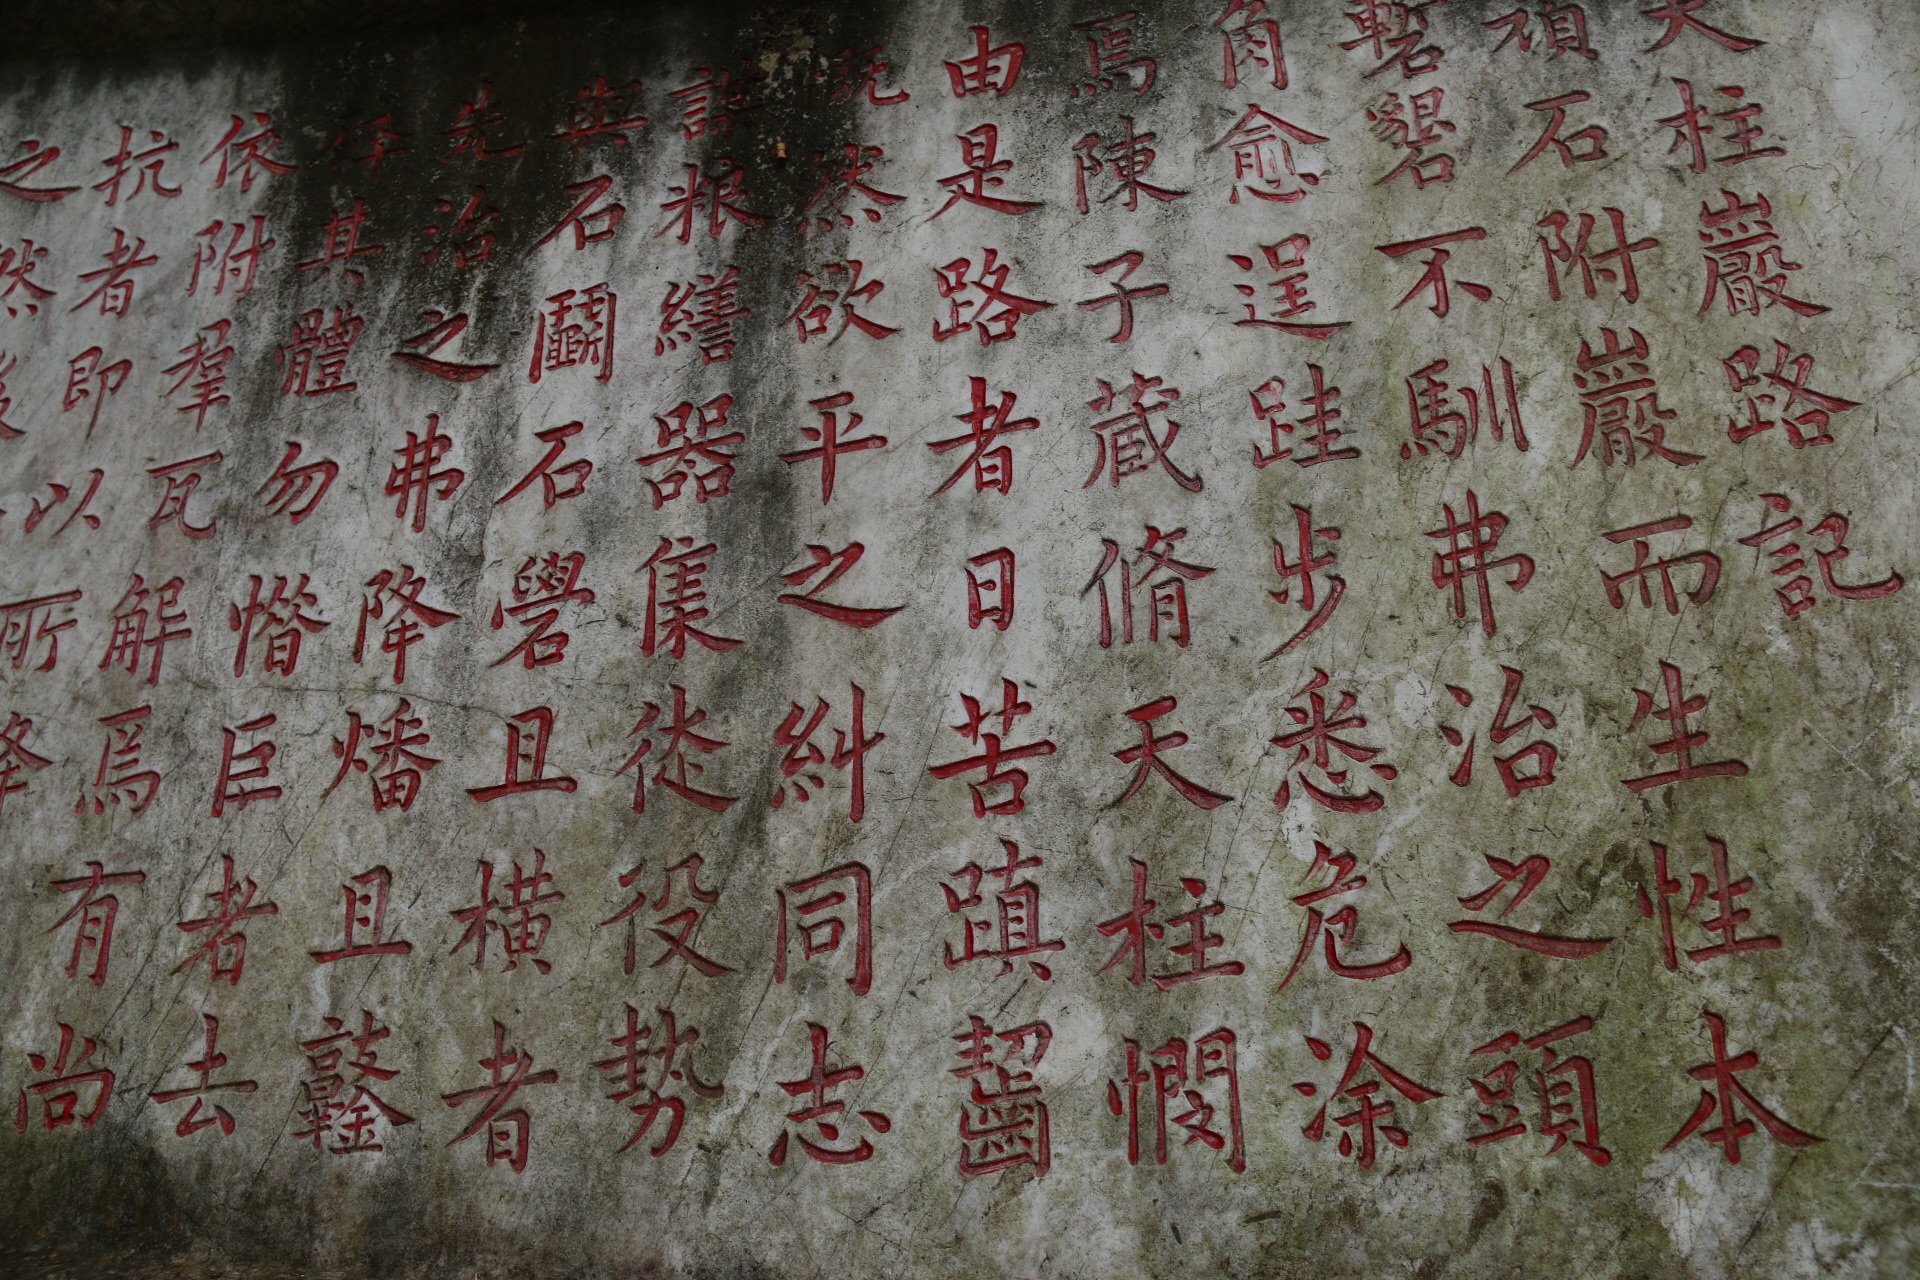 天柱巖路記
頑石附巖而生性本
礊不馴弗治之頭
角愈逞跬步悉危涂
焉陳子蔵脩天柱憫
由是路者日苦蹎齧
慨然欲平之糾同志
設粮繕器集徒役势
與石鬬石礐且横者
先治之弗降燔且鼛
其體勿憯巨者去
依附羣瓦解焉有尚
抗者即以所降
之然